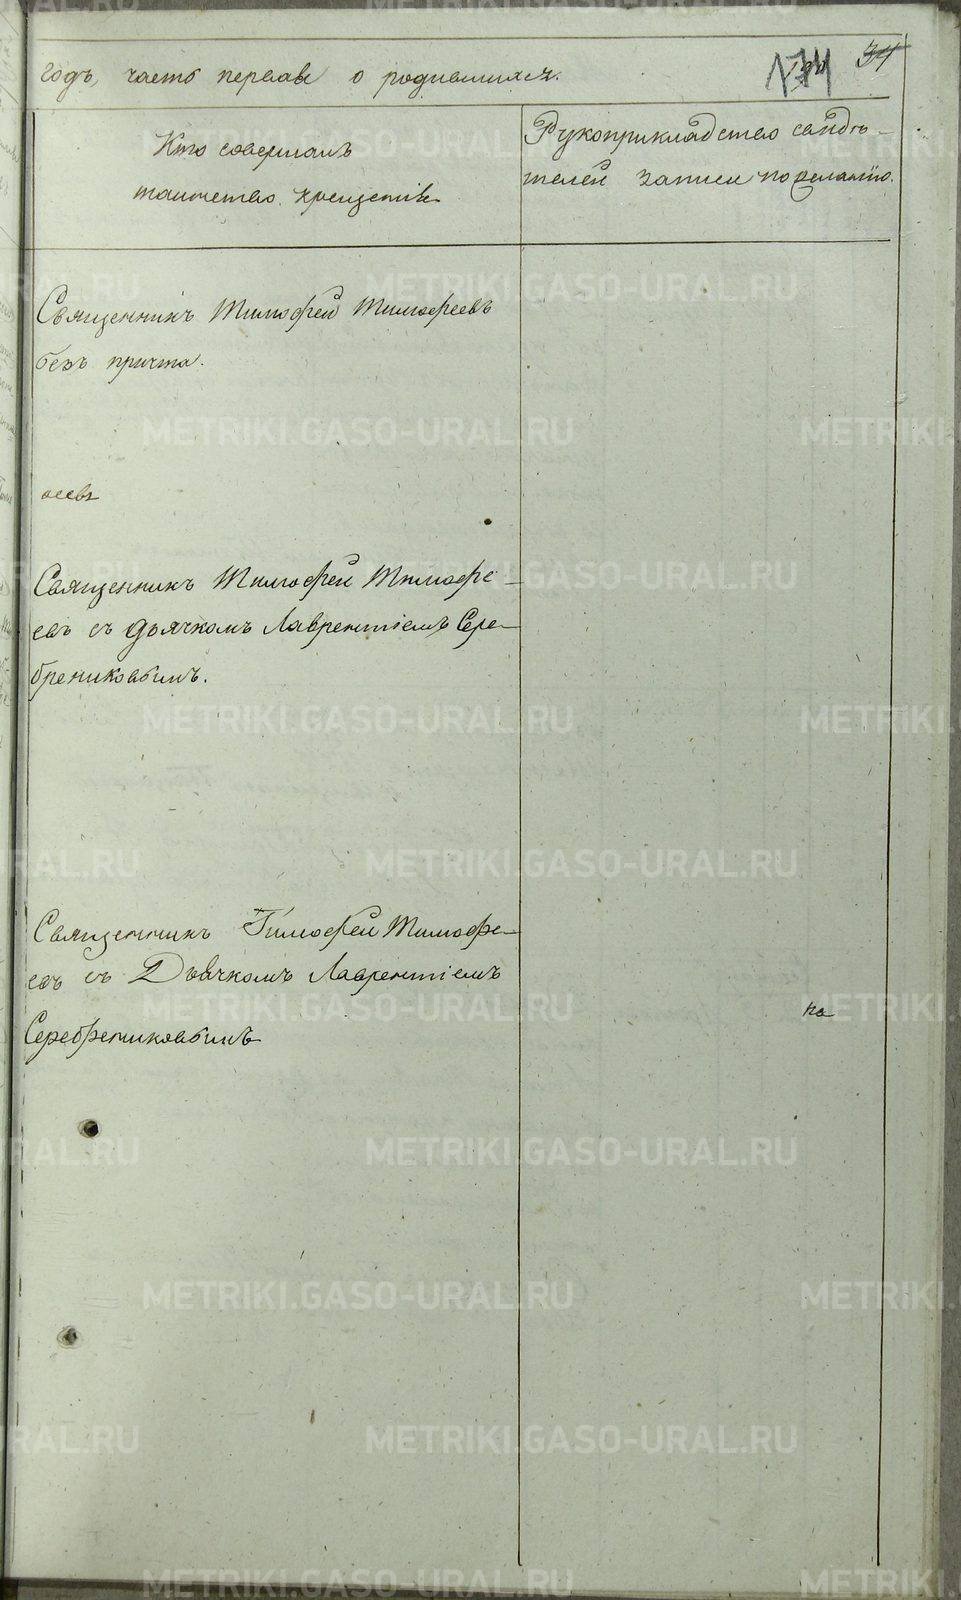 годъ, часть первая о родившихся.
174 34
Кто совершалъ
таинство крещенія
Рукоприкладство свидѣ-
телей записи по желанію.
Священникъ Тимофей Тимофеевъ
безъ причта.
Священникъ Тимофей Тимофе-
евъ съ дьячкомъ Лаврентіемъ Сере-
брениковымъ.
Священникъ Тимофей Тимофе-
евъ съ Дьячкомъ Лаврентіемъ
Серебрениковымъ
на
METRIKI.GASO-URAL.RU